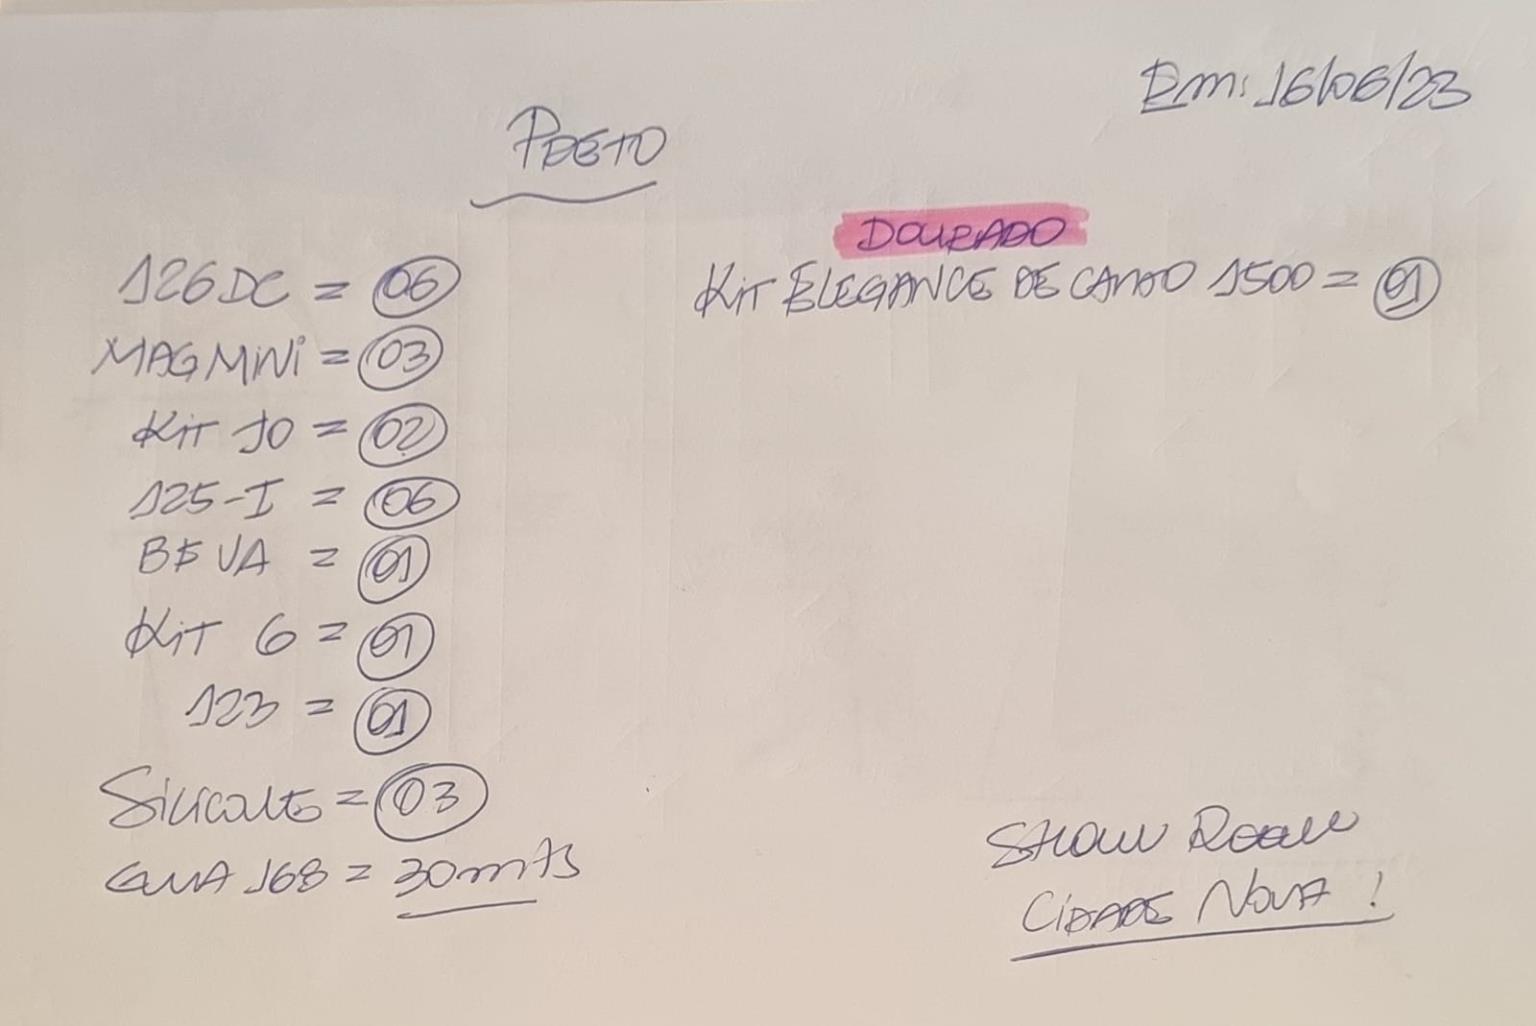 Em: 16/06/23
PRETO
126DC = 06
MAG MiNi = 03
KiT 10 = 02
125-I = 06
BEVA = 01
KiT 6 = 01
123 = 01
SiLiCONE = 03
GUIA 168 = 30mts
DOURADO
KiT ELEGANCE DE CANTO 1500 = 01
SHOW ROOM
CiDADE NOVA!